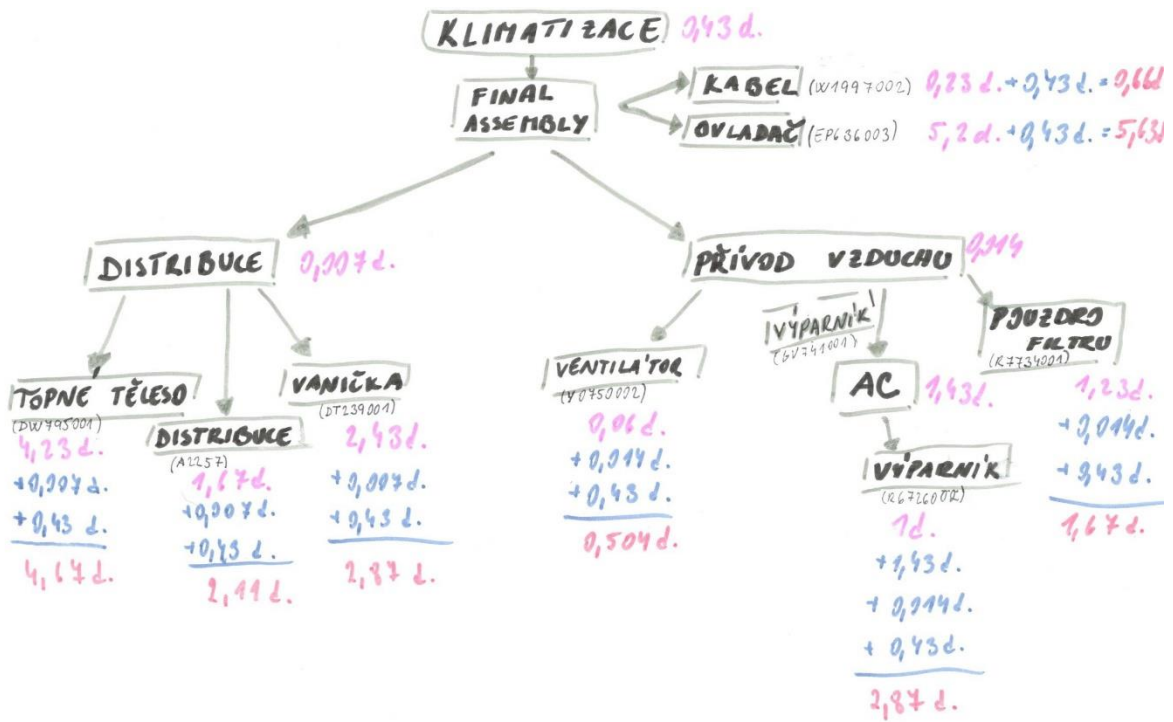 KLIMATIZACE 0,43 d.
FINAL
ASSEMBLY
KABEL (W1997002) 0,23 d. + 0,43 d. = 0,66d
OVLADAČ (EP636003) 5,2 d. + 0,43 d. = 5,63d
DISTRIBUCE 0,007 d.
PŘÍVOD VZDUCHU 0,014
TOPNÉ TĚLESO
(DW795001)
4,23 d.
+0,007 d.
+0,43 d.
4,67 d.
DISTRIBUCE
(A2257)
1,67 d.
+0,007 d.
+0,43 d.
2,11 d.
VANIČKA
(DT239001)
2,43 d.
+0,007 d.
+0,43 d.
2,87 d.
VENTILÁTOR
(Y0750002)
0,06 d.
+0,014 d.
+0,43 d.
0,504 d.
VÝPARNÍK
(GV741001)
AC 1,43 d.
VÝPARNÍK
1 d.
+ 1,43 d.
+ 0,014 d.
+ 0,43 d.
2,87 d.
POUZDRO
FILTRU
(R7734001)
1,23 d.
+0,014 d.
+0,43 d.
1,67 d.